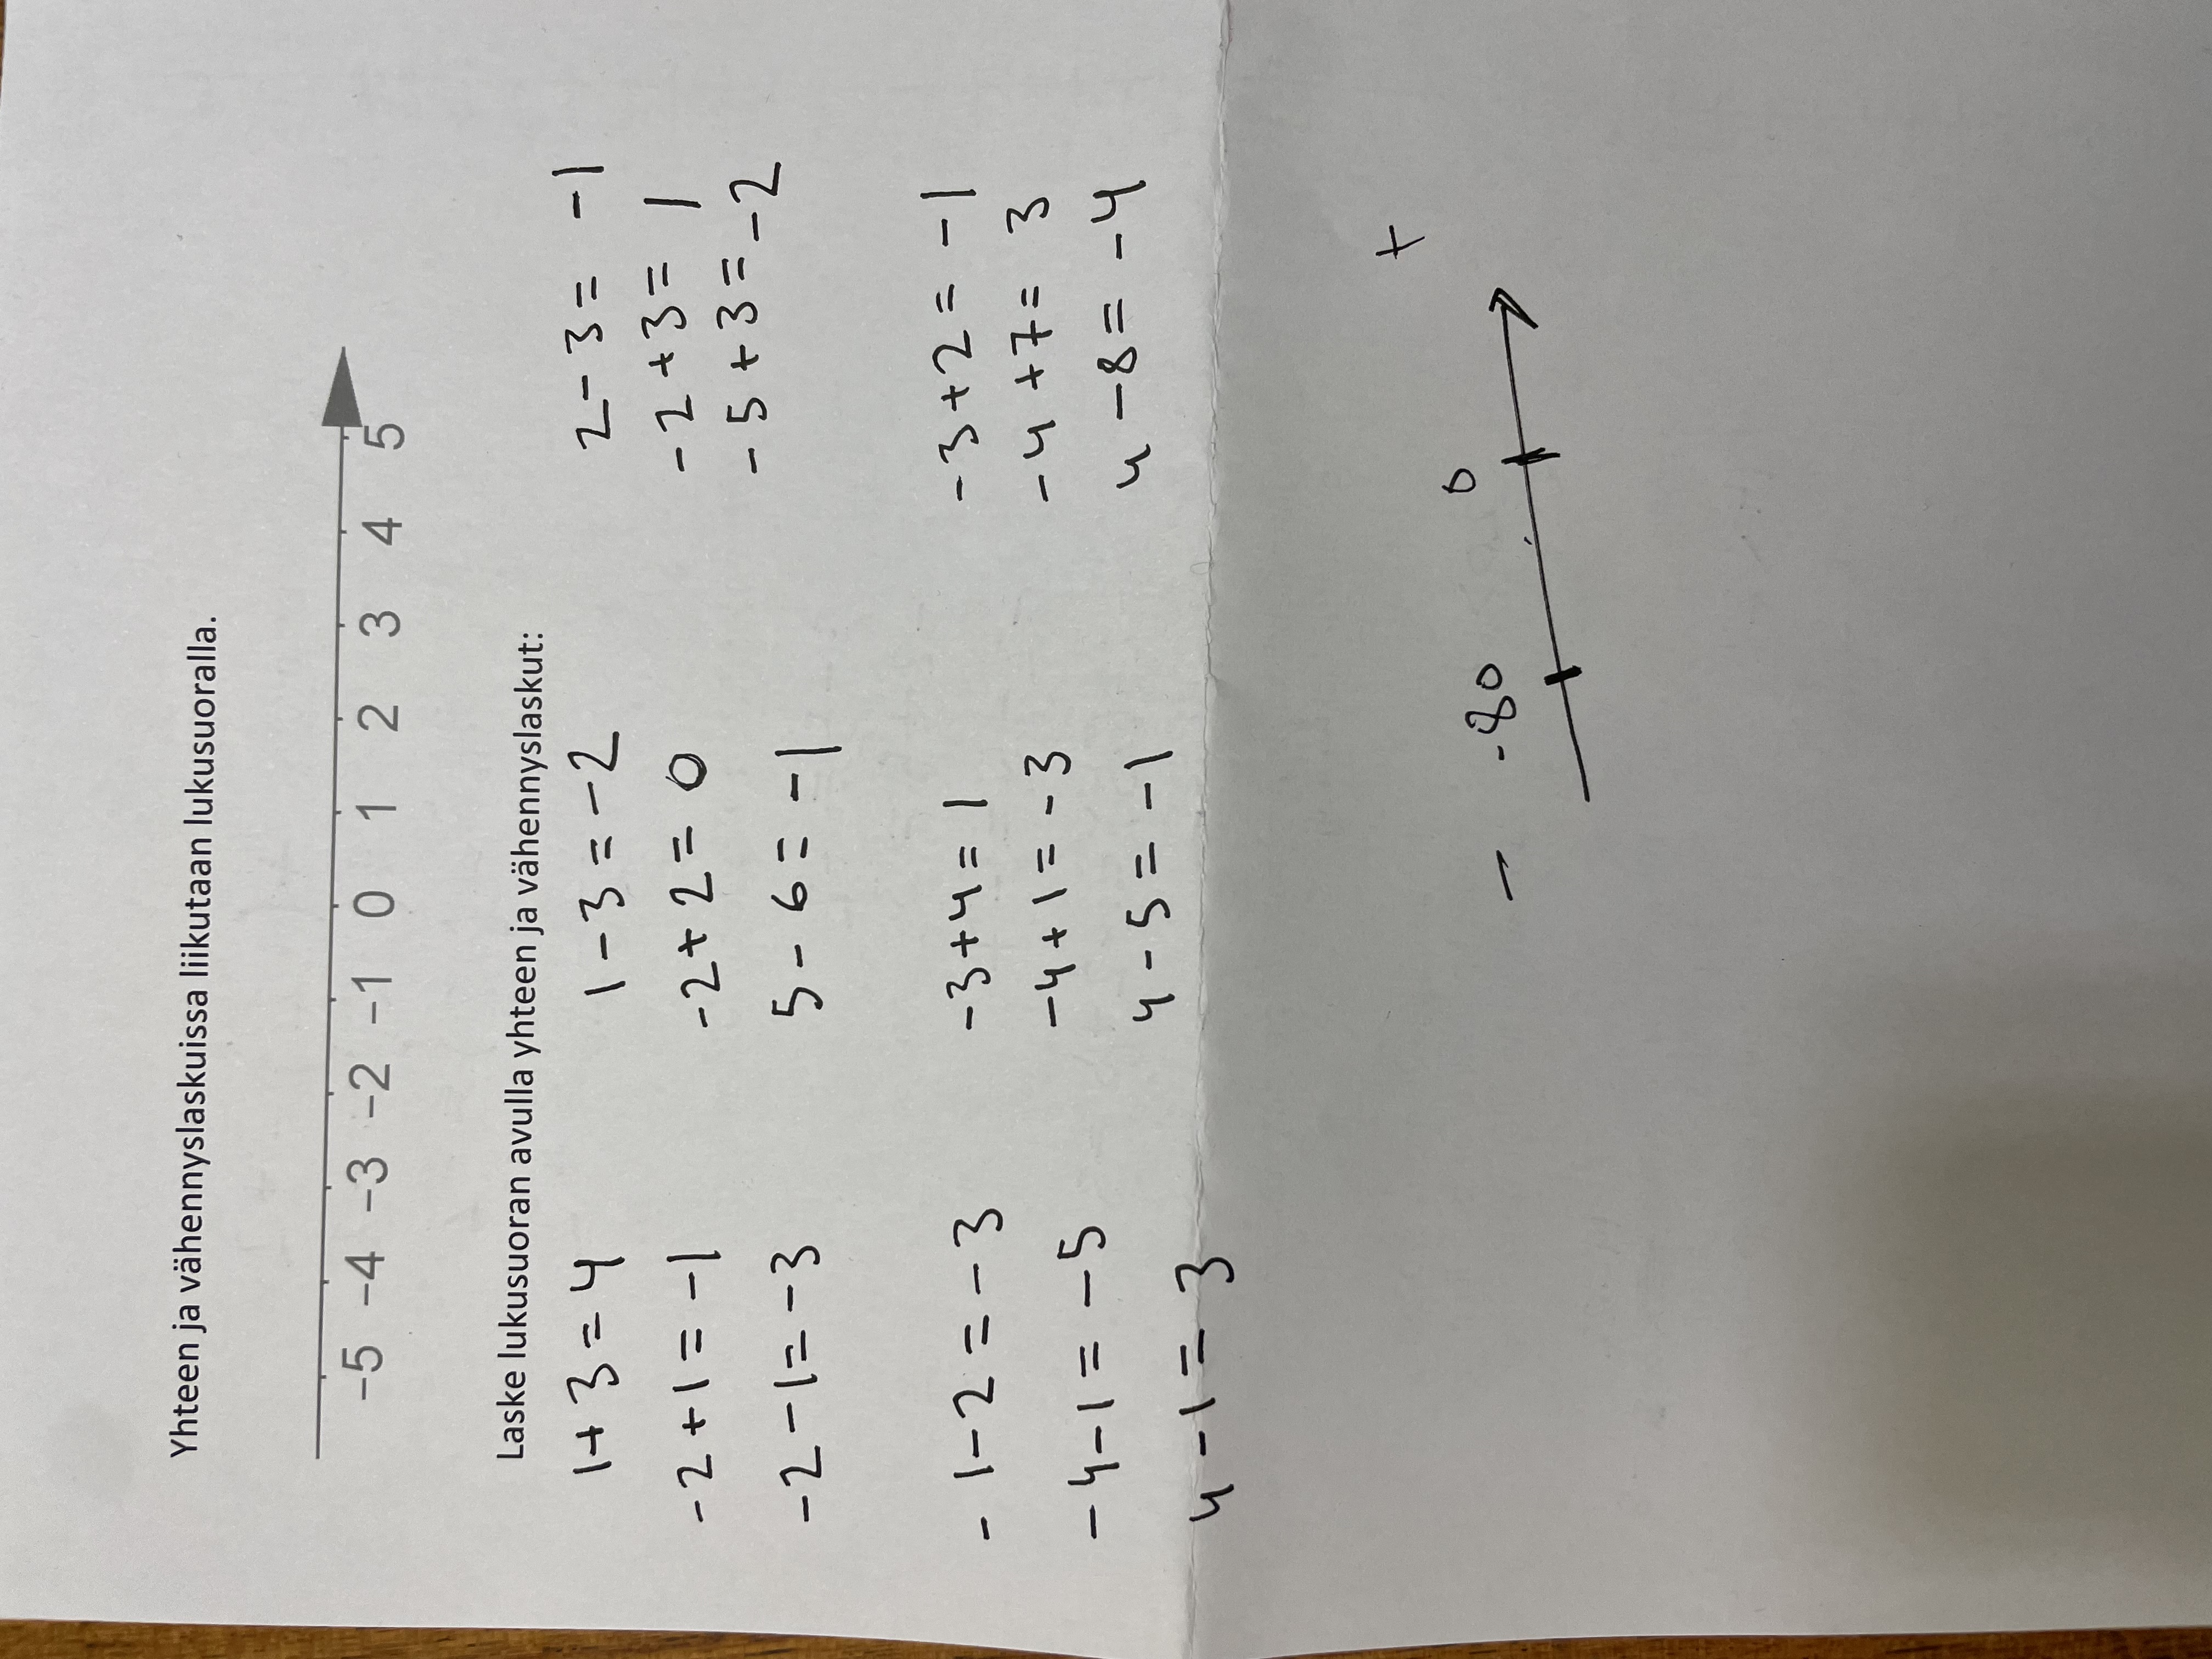 Yhteen ja vähennyslaskuissa liikutaan lukusuoralla.
-5 -4 -3 -2 -1 0 1 2 3 4 5
Laske lukusuoran avulla yhteen ja vähennyslaskut:
1+3=4 1-3=-2 2-3= -1
-2+1=-1 -2+2=0 -2+3=1
-2-1=-3 5-6=-1 -5+3=-2
-1-2=-3 -3+4=1 -3+2=-1
-4-1=-5 -4+1=-3 -4+7=3
4-1=3 4-5=-1 4-8=-4
- -80 0 +